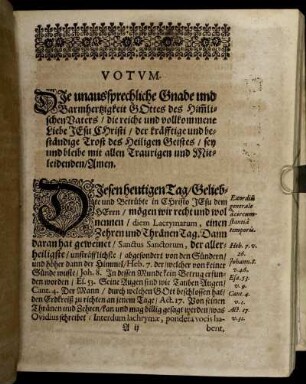 VOTUM.
DIe unaussprechliche Gnade und
Barmhertzigkeit GOttes des Him̃li-
schen Vaters / die reiche und vollkommene
Liebe JEsu Christi / der kräfftige und be-
ständige Trost des Heiligen Geistes / sey
und bleibe mit allen Traurigen und Mit-
leidenden / Amen.
DIesen heutigen Tag / Gelieb-
te und Betrübte in Christo JEsu dem
HErrn / mögen wir recht und wol
nennen / diem Lacrymarum, einen
Zehren und Thränen Tag. Dann
daran hat geweinet / Sanctus Sanctorum, der aller-
heiligste / unsträflichste / abgesondert von den Sündern /
und höher dann der Himmel / Heb. 7. der welcher von keiner
Sünde wuste / Joh. 8. In dessen Munde kein Betrug erfun-
den worden / Es. 53. Seine Augen sind wie Tauben Augen /
Cant. 4. Der Mann / durch welchen GOtt beschlossen hat /
den Erdkreiß zu richten an jenem Tage / Act. 17. Von seinen
Thränen und Zehren / kan und mag billig gesagt werden was
Ovidius schreibet / Interdum lachrymæ, pondera vocis ha-
A ij
bent,
generale
temporis.
Heb. 7. v.
26.
Johann. 8.
v. 46.
Esa. 53.
v. 9.
Cant. 4.
v. 1.
Act. 17.
v. 31.